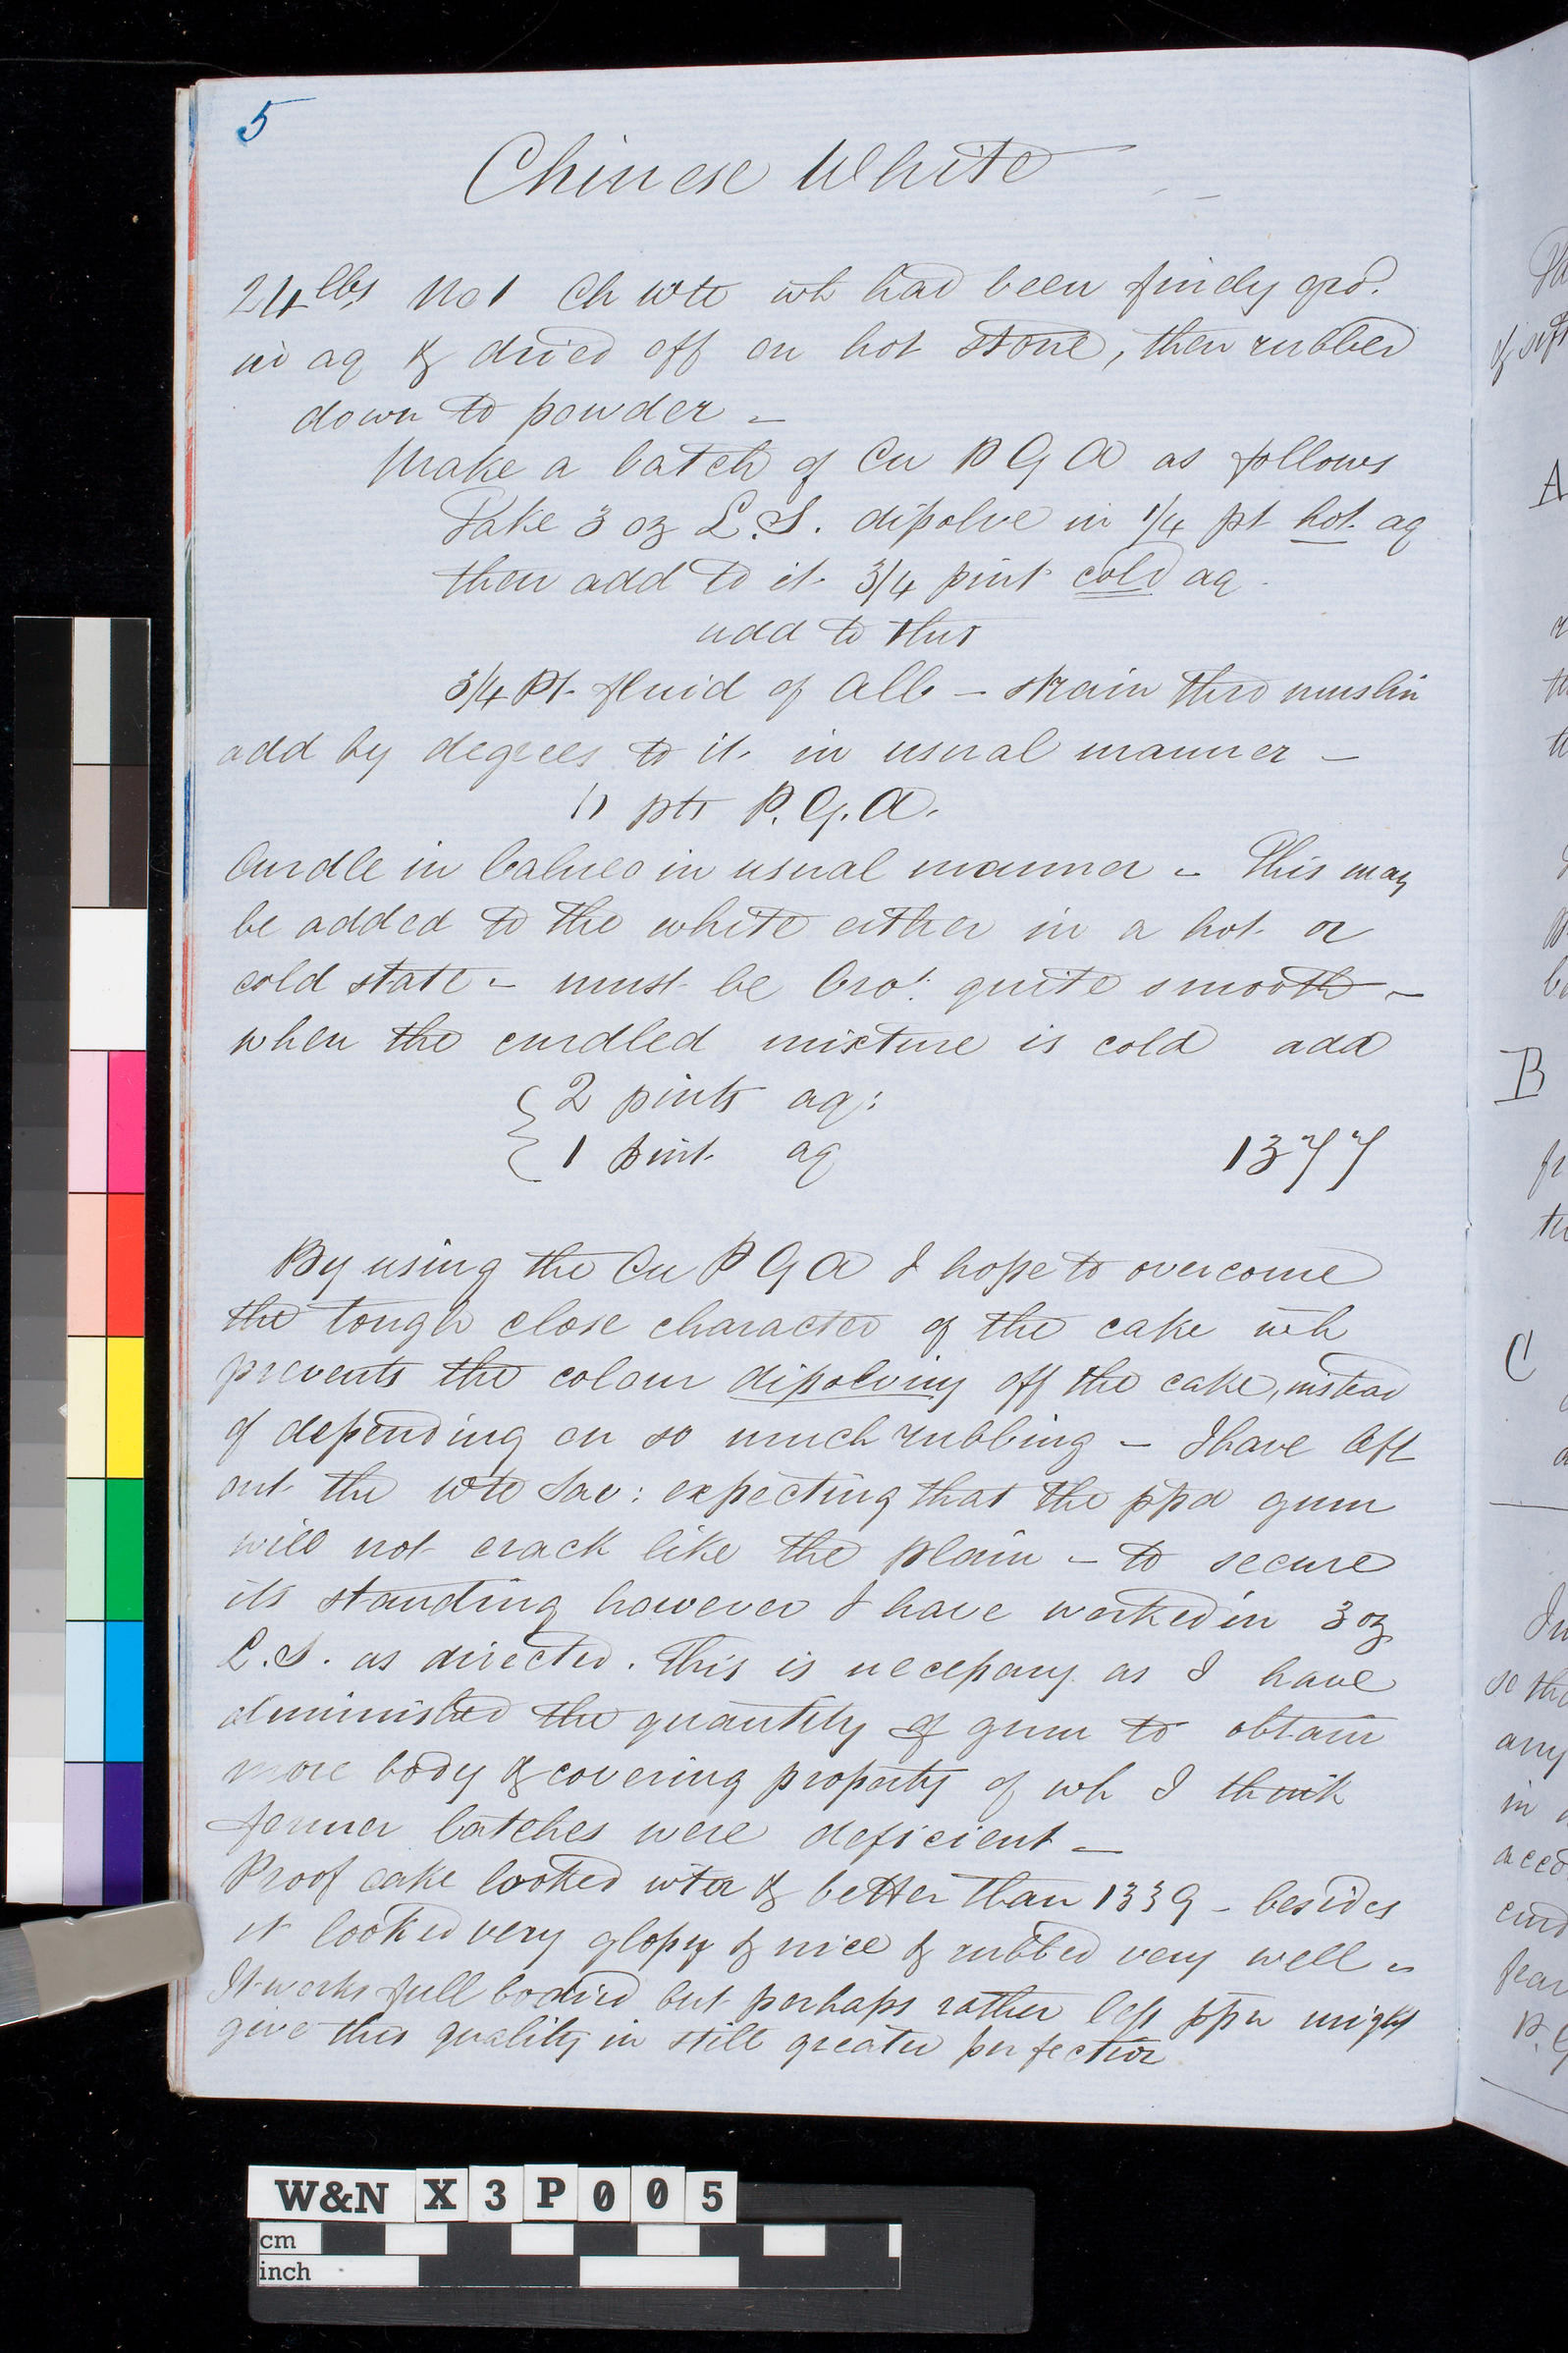 5
Chinese White
24lbs No1 Ch wte wh had been finely grd.
in aq & dried off on hot stone, then rubbed
down to powder –
Make a batch of Cu P G A as follows
Take 3 oz L.S. dissolve in 1/4 pt hot aq
then add to it 3/4 pint cold aq.
add to this
3/4 Pt fluid of Alb – strain thro muslin
add by degrees to it in usual manner –
11 pts P.G.A.
Curdle in in usual manner – This may
be added to the white either in a hot or
cold state – must be bro! quite smooth –
when the curdled mixture is cold add
2 pints aq:
1 pint aq
1377
By using the Cu P G A I hope to overcome
the tough close character of the cake wh
prevents the colour dissolving off the cake, instead
of depending on so much rubbing – I have left
out the wte : expecting that the ppd gum
will not crack like the plain – to secure
its standing however I have worked in 3 oz
L.S. as directed. This is necessary as I have
diminished the quantity of gum to obtain
more body & covering property of wh I think
former batches were deficient –
Proof cake looked wter & better than 1339 – besides
it looked very glossy & nice & rubbed very well –
It works full bodied but perhaps rather less might
give this quality in still greater perfection
W&N X3P005
cm
inch
A
B
C